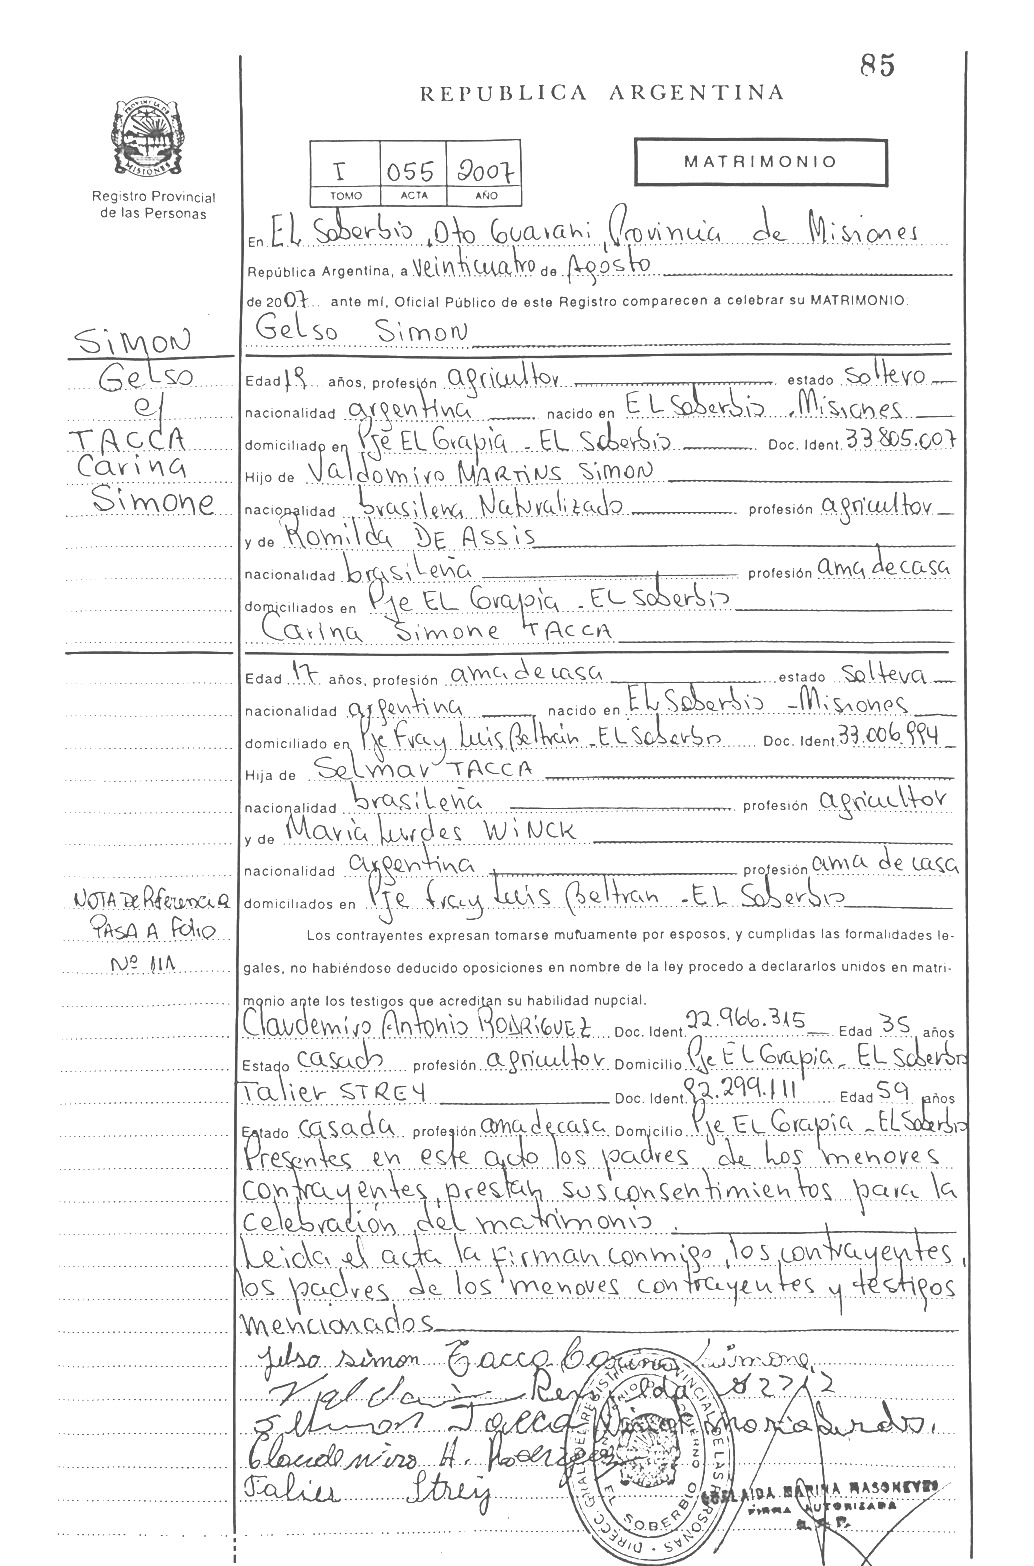 85
REPUBLICA ARGENTINA
PROVINCIA DE MISIONES
Registro Provincial
de las Personas
I 055 2007
TOMO ACTA AÑO
MATRIMONIO
En EL Soberbio, Dto Guarani, Provincia de Misiones
República Argentina, a veinticuatro de Agosto
de 2007 ante mí, Oficial Público de este Registro comparecen a celebrar su MATRIMONIO.
Gelso Simon
SIMON
Gelso
e/
TACCA
Carina
Simone
Edad 19 años, profesión agricultor estado soltero
nacionalidad argentina nacido en EL Soberbio . Misiones
domiciliado en Pje EL Grapia - EL Soberbio Doc. Ident. 33.805.007
Hijo de Valdomiro MARTINS SIMON
nacionalidad brasilera Naturalizado profesión agricultor
y de Romilda DE ASSIS
nacionalidad brasileña profesión ama de casa
domiciliados en Pje EL Grapia - EL Soberbio
Carina Simone TACCA
Edad 17 años, profesión ama de casa estado soltera
nacionalidad argentina nacido en EL Soberbio - Misiones
domiciliado en Pje Fray Luis Beltrán - EL Soberbio Doc. Ident. 33.006.994
Hija de Selmar TACCA
nacionalidad brasileña profesión agricultor
y de Maria Lurdes WINCK
nacionalidad argentina profesión ama de casa
domiciliados en Pje Fray Luis Beltran - EL Soberbio
NOTA De Rferencia
PASA A Folio
Nº 111
Los contrayentes expresan tomarse mutuamente por esposos, y cumplidas las formalidades le-
gales, no habiéndose deducido oposiciones en nombre de la ley procedo a declararlos unidos en matri-
monio ante los testigos que acreditan su habilidad nupcial.
Claudemiro Antonio RODRIGUEZ Doc. Ident. 22.966.315 Edad 35 años
Estado casado profesión agricultor Domicilio Pje EL Grapia - EL Soberbio
Talier STREY Doc. Ident. 92.299.111 Edad 59 años
Estado casada profesión ama de casa Domicilio Pje EL Grapia - EL Soberbio
Presentes en este acto los padres de los menores
contrayentes, prestan sus consentimientos para la
celebración del matrimonio.
Leida el acta la firman conmigo, los contrayentes,
los padres de los menores contrayentes y testigos
mencionados
Gelso simon Tacca Carina Simone
Tacca
Claudemiro A. Rodriguez
Talier Strey
DIRECC. GRAL. DEL REGISTRO PROVINCIAL DE LAS PERSONAS
EL SOBERBIO
MARINA MASONEVES
FIRMA AUTORIZADA